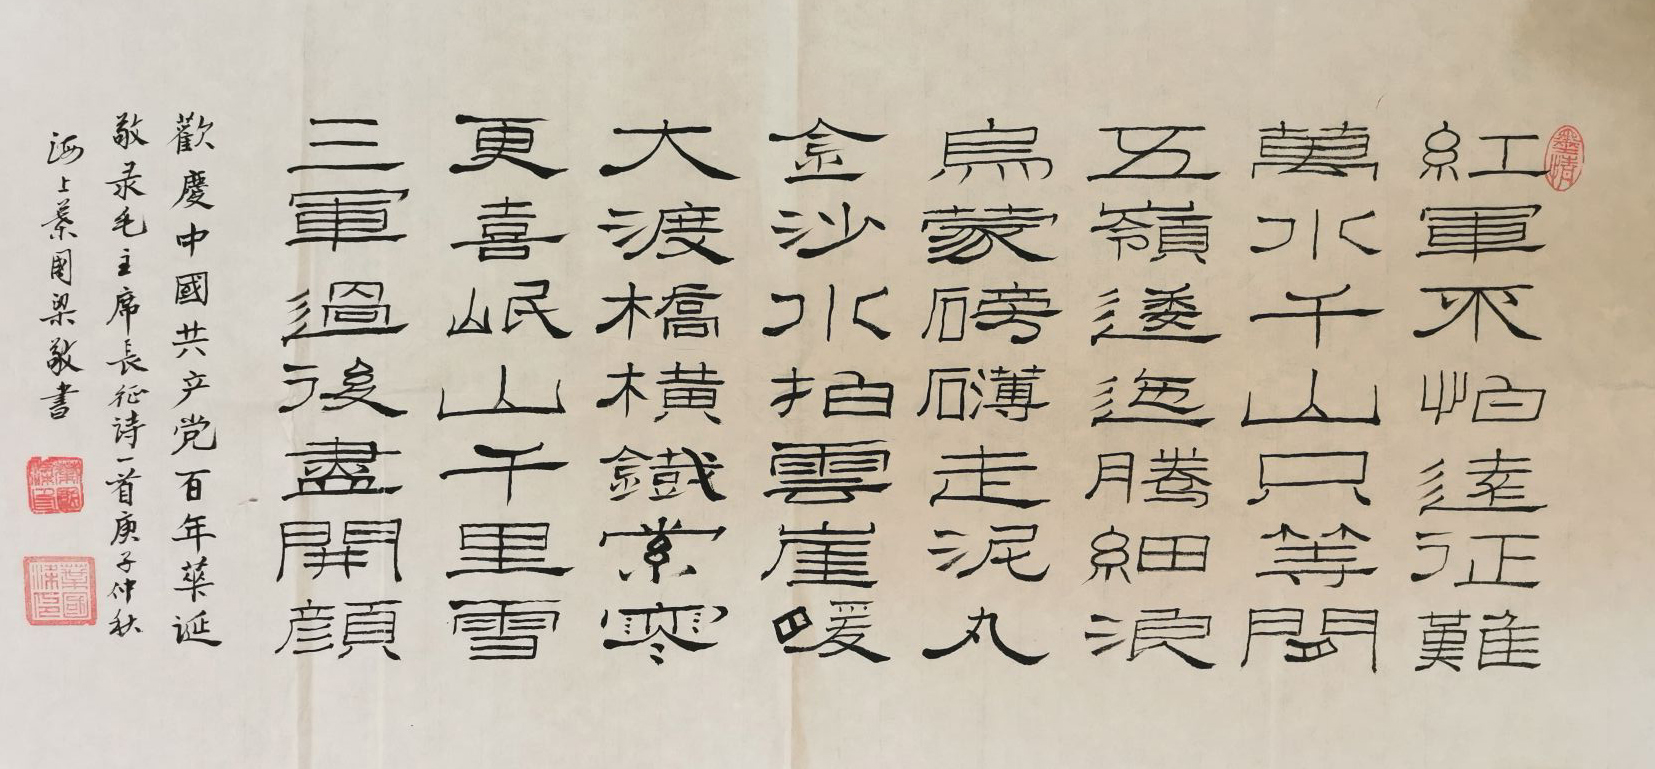 墨情
紅軍不怕遠征難
萬水千山只等閑
五嶺逶迤騰細浪
烏蒙磅礴走泥丸
金沙水拍雲崖暖
大渡橋橫鐵索寒
更喜岷山千里雪
三軍過後盡開顏
歡慶中國共产党百年華诞
敬录毛主席長征詩一首庚子仲秋
海上葉国梁敬書